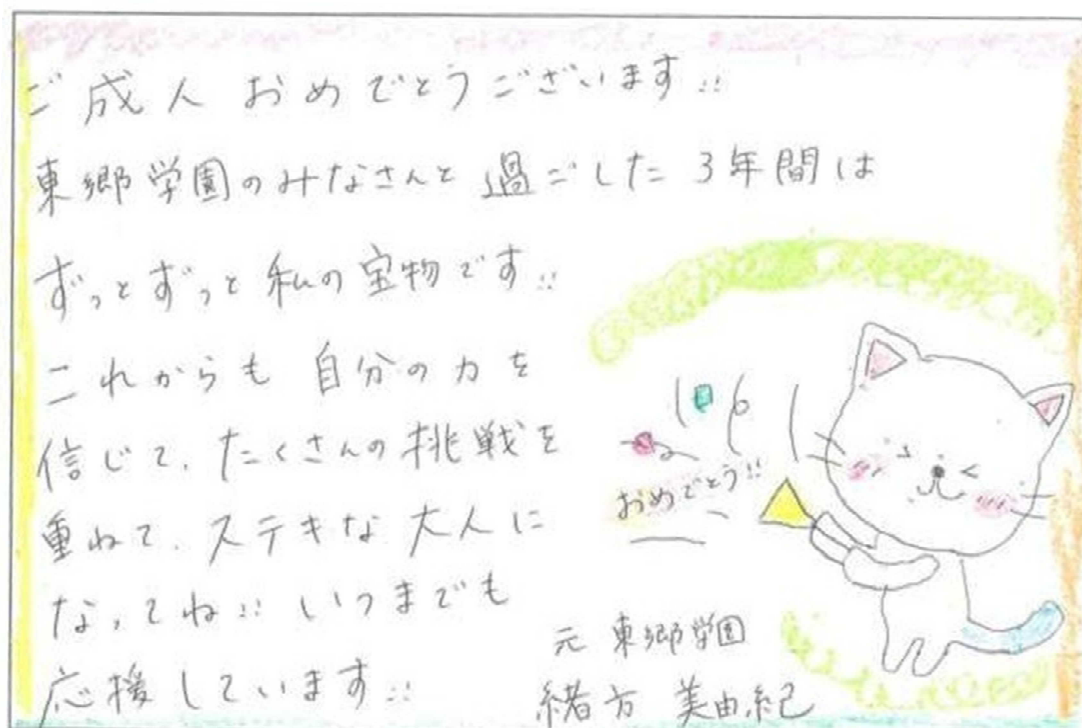 ご成人 おめでとうございます!!
東郷学園のみなさんと過ごした3年間は
ずっとずっと私の宝物です!!
これからも 自分の力を
信じて、たくさんの挑戦を
重ねて、ステキな大人に
なってね!! いつまでも
応援しています!!
おめでとう!!
元 東郷学園
緒方 美由紀